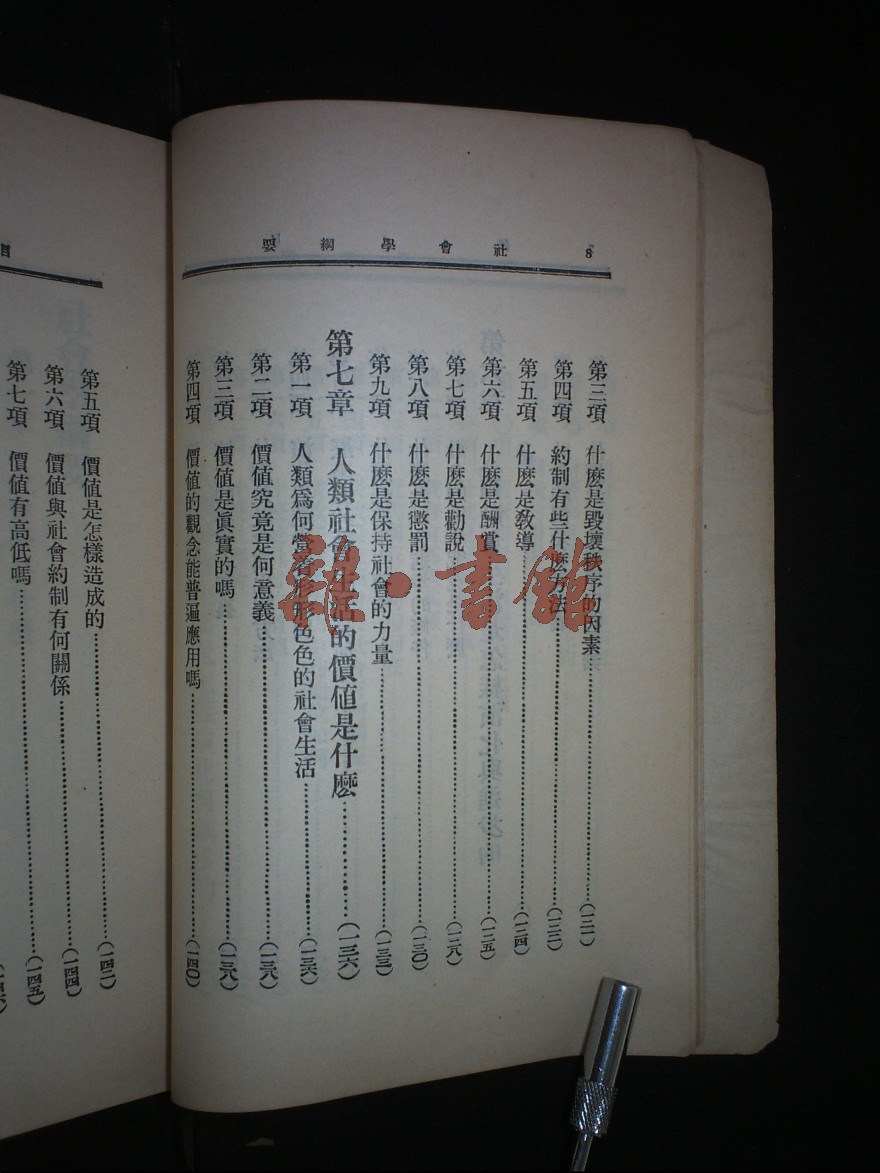 8 社會學綱要
第三項 什麽是毀壞秩序的因素……(一二一)
第四項 約制有些什麽方法……(一二二)
第五項 什麽是敎導……(一二四)
第六項 什麽是酬賞……(一二五)
第七項 什麽是勸說……(一二八)
第八項 什麽是懲罰……(一三〇)
第九項 什麽是保持社會的力量……(一三三)
第七章 人類社會生活的價値是什麽……(一三六)
第一項 人類爲何營着形形色色的社會生活……(一三六)
第二項 價値究竟是何意義……(一三八)
第三項 價値是眞實的嗎……(一三八)
第四項 價値的觀念能普遍應用嗎……(一四〇)
目
第五項 價値是怎樣造成的……(一四二)
第六項 價値與社會約制有何關係……(一四四)
第七項 價値有高低嗎……(一四五)
雜·書館